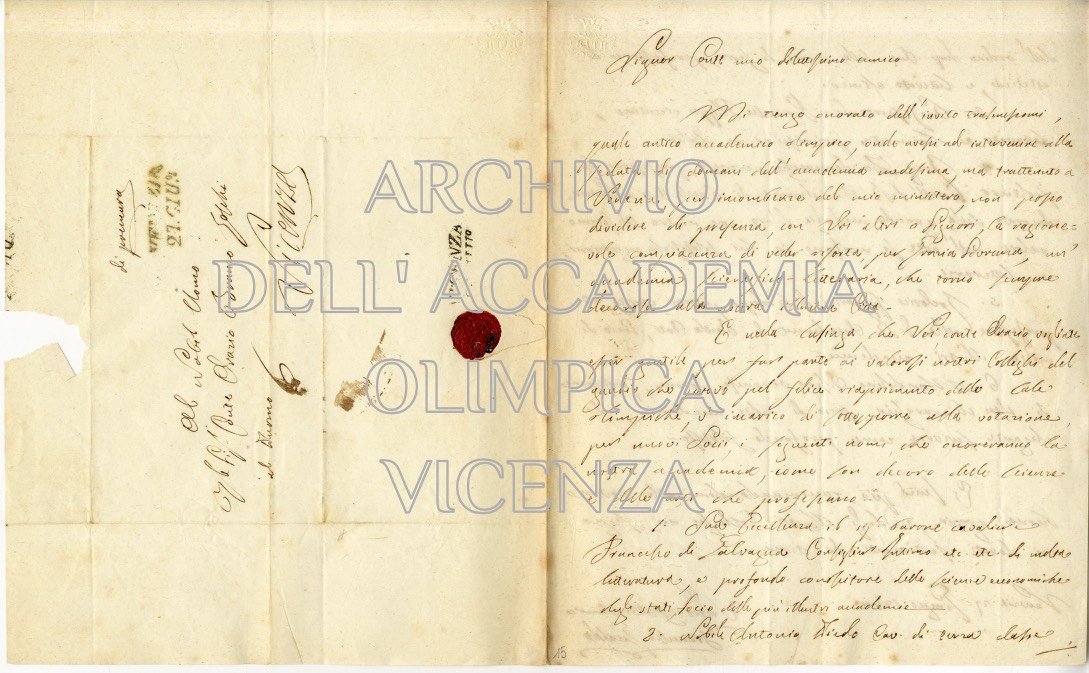 di premura
VENEZIA
27. GIU.
Al Nobil Uomo
Conte Orazio
al Duomo
Vicenza
ARCHIVIO
DELL' ACCADEMIA
OLIMPICA
VICENZA
Signor Conte mio dilettissimo amico
Mi tengo onorato dell'invito trasmessomi,
quale antico accademico olimpico, onde avessi ad intervenire alla
seduta di domani dell'accademia medesima ma trattenuto a
Venezia, per incombenze del mio ministero, non posso
dividere di presenza, con Voi altri o Signori, la ragione=
vole compiacenza di veder risorta, per Sovrana, un'
accademia scientifico letteraria, che tornò sempre
decorosa alla
E nella lusinga, che Voi conte Orazio vogliate
esser gentile per far parte ai valorosi nostri Colleghi del
gaudio che provo pel felice riaprimento delle sale
olimpiche, v'incarico di sottoporre alla votazione,
per nuovi Socii, i seguenti nomi, che onoreranno la
nostra accademia, come son decoro delle scienze
e delle arti che professano
1. Sua Eccellenza il sig.r barone cavaliere
Francesco de Galvagna Consigliere Intimo etc. etc. di molta
letteratura, e profondo conoscitore delle scienze economiche
degli stati, socio delle più illustri accademie
2. Nobile Antonio Diedo Cav. di terza classe
15